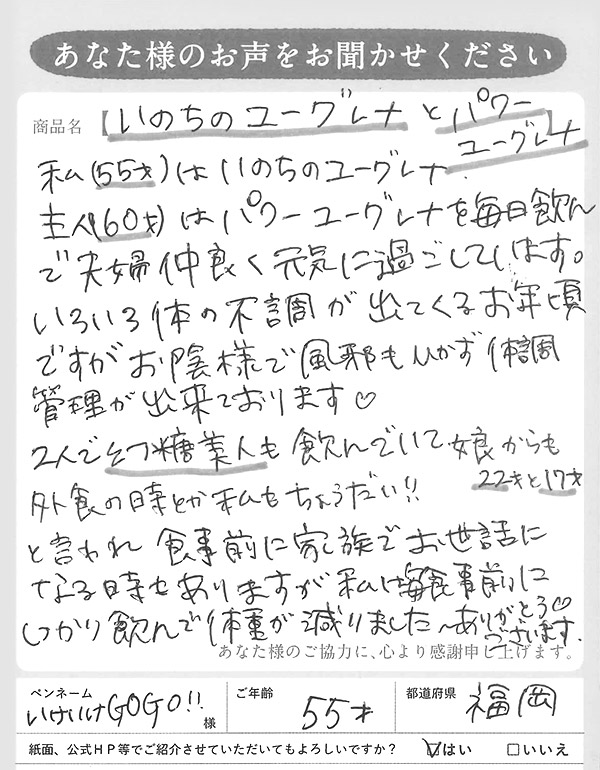 あなた様のお声をお聞かせください
商品名【いのちのユーグレナとパワー
ユーグレナ
私(55才)はいのちのユーグレナ
主人(60才)はパワーユーグレナを毎日飲ん
で夫婦仲良く元気に過ごしています。
いろいろ体の不調が出てくるお年頃
ですがお陰様で風邪もひかず体調
管理が出来ております♡
2人でそつ糖美人も飲んでいて娘からも
22才と17才
外食の時とか私もちょうだい!!
と言われ食事前に家族でお世話に
なる時もありますが私は毎食事前に
しっかり飲んで体重が減りました〜ありがとう♡
ございます。
あなた様のご協力に、心より感謝申し上げます。
ペンネーム
いけいけGOGO!!様
ご年齢
55才
都道府県
福岡
紙面、公式HP等でご紹介させていただいてもよろしいですか? ☑はい □いいえ